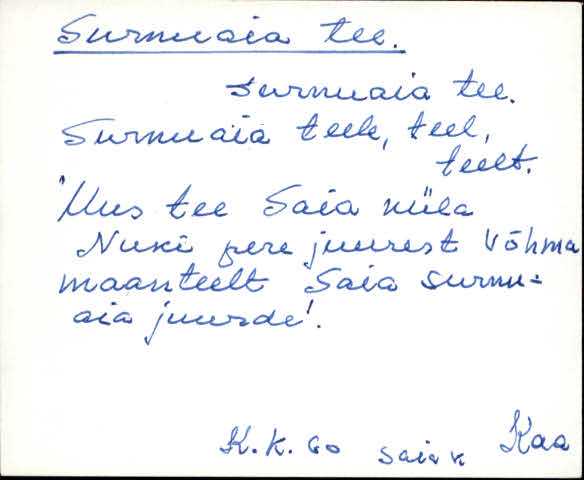 Surnuaia tee.
surnuaia tee.
Surnuaia teele, teel,
teelt.
"Uus tee Saia küla
Nuki pere juurest Võhma
maanteelt Saia surnu=
aia juurde".
K.k. 60 Saia k Kaa